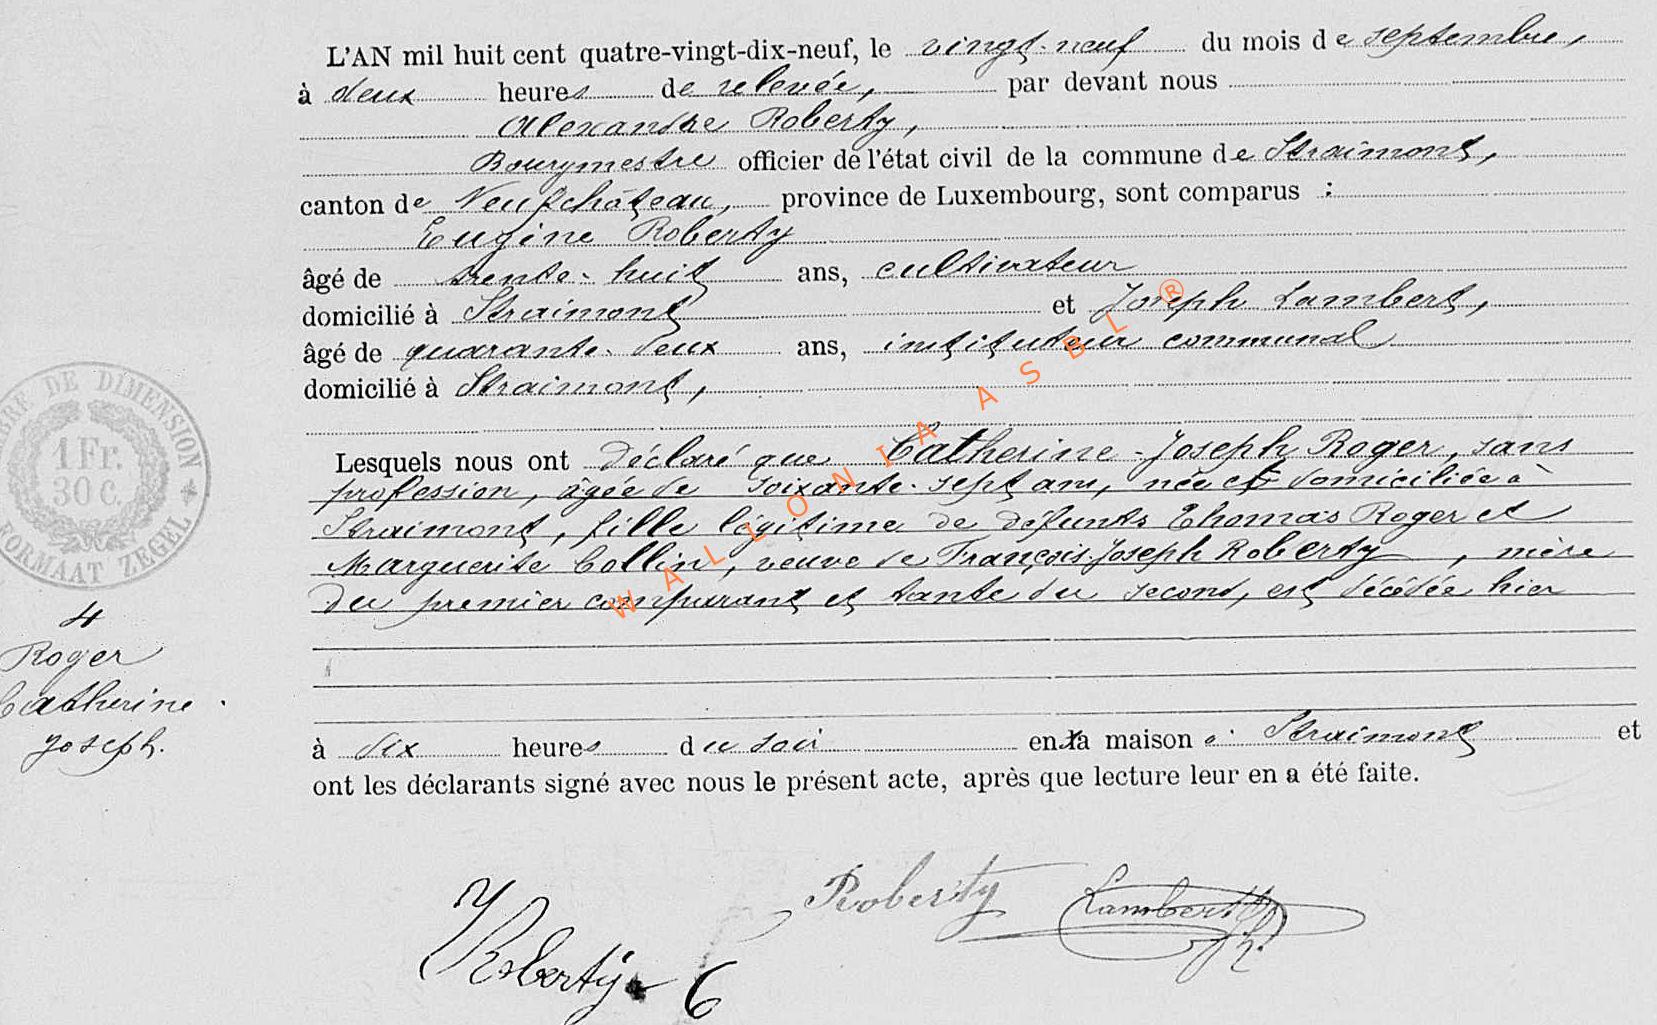 L'AN mil huit cent quatre-vingt-dix-neuf, le vingt-neuf du mois de septembre,
à deux heures de relevée, par devant nous
Alexandre Roberty,
Bourgmestre officier de l'état civil de la commune de Straimont,
canton de Neufchâteau, province de Luxembourg, sont comparus :
Eugène Roberty
âgé de trente-huit ans, cultivateur
domicilié à Straimont et Joseph Lambert,
âgé de quarante-deux ans, instituteur communal
domicilié à Straimont,
Lesquels nous ont déclaré que Catherine-Joseph Roger, sans
profession, âgée de soixante-sept ans, née et domiciliée à
Straimont, fille légitime de défunts Thomas Roger et
Marguerite Collin, veuve de François-Joseph Roberty, mère
du premier comparant et tante du second, est décédée hier
à dix heures du soir en sa maison à Straimont et
ont les déclarants signé avec nous le présent acte, après que lecture leur en a été faite.
TIMBRE DE DIMENSION
1 Fr.
30 C.
FORMAAT ZEGEL
4
Roger
Catherine
Joseph.
WALLONIA ASBL ®
Roberty Lambert Jh.
Roberty